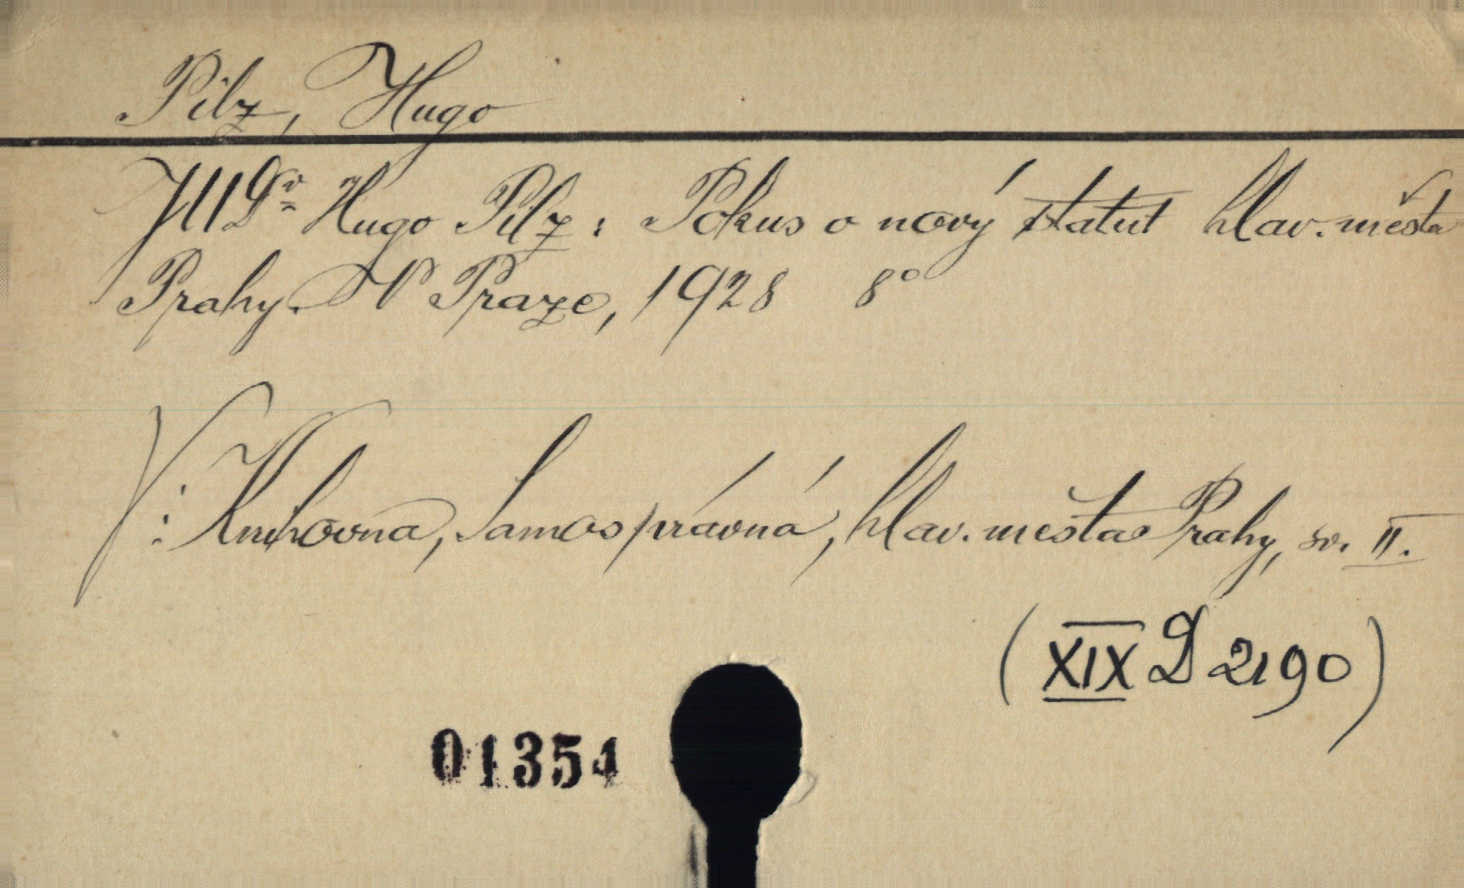 Pilz, Hugo
JUDr Hugo Pilz: Pokus o nový statut hlav. města
Prahy. V Praze, 1928 8°
V: Knihovna, Samosprávná, hlav. města Prahy, sv. II.
(XIX D 2190)
01354